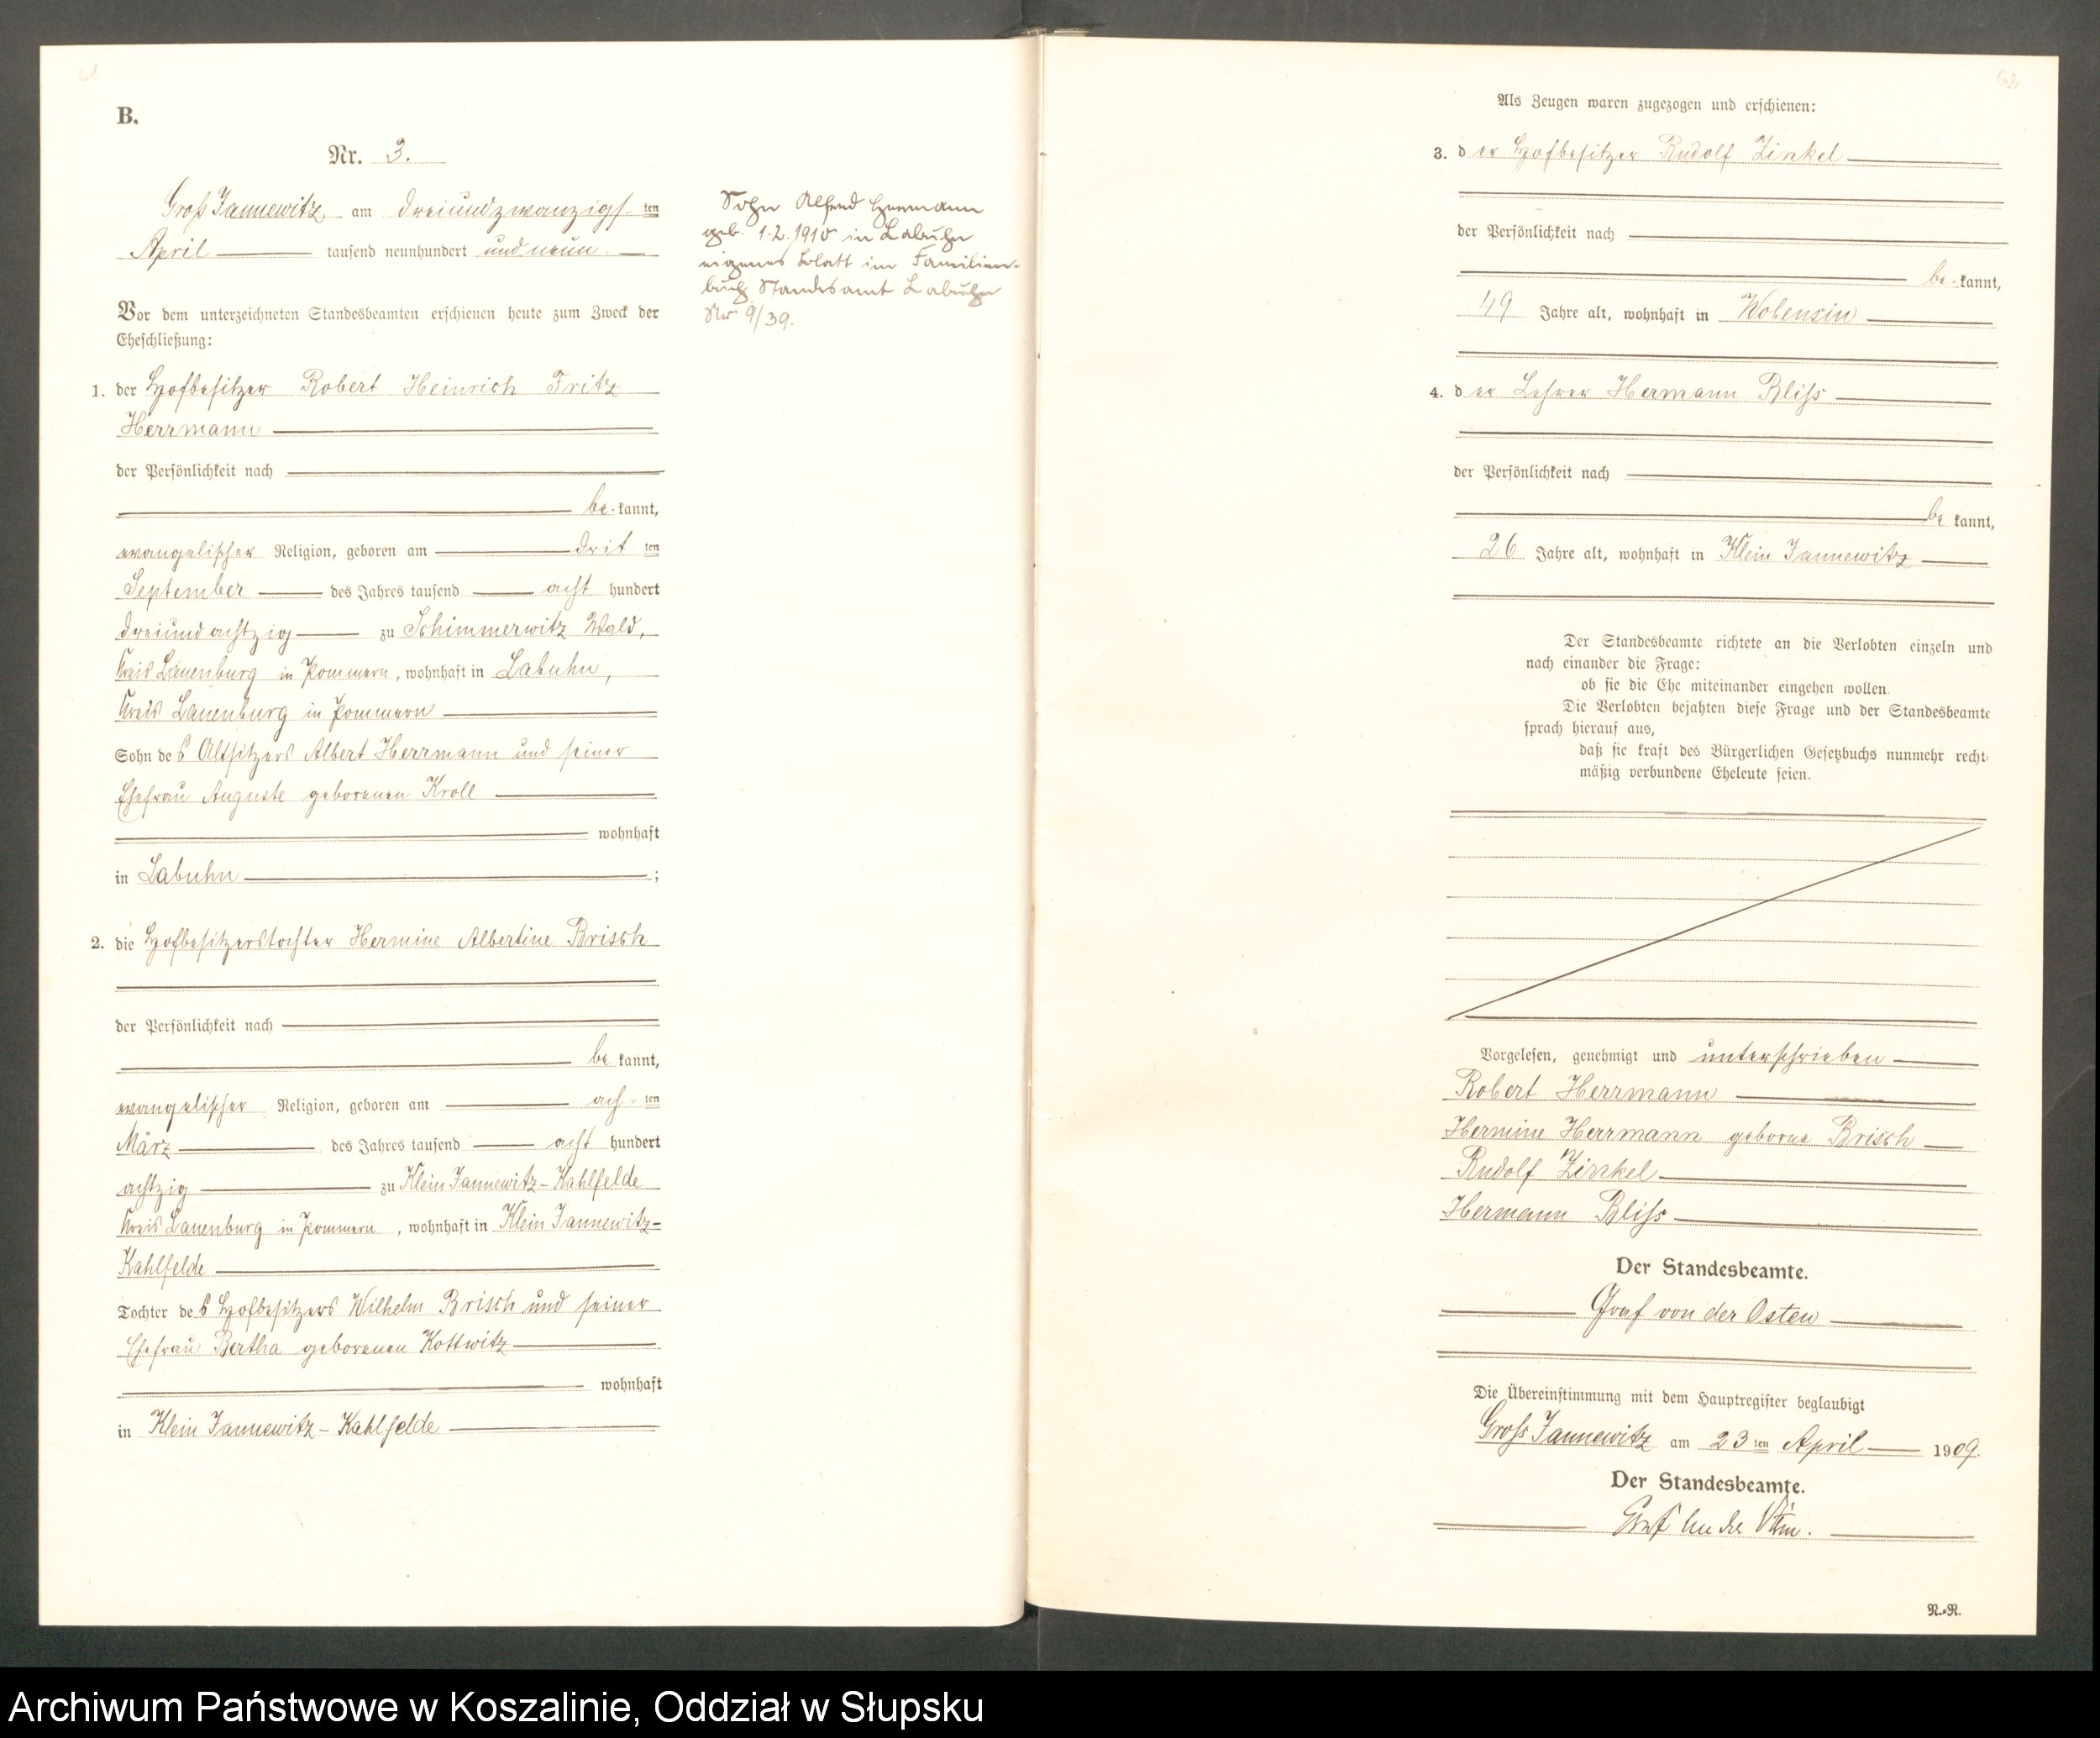 61
B.
Nr. 3.
Groß Jannewitz am dreiundzwanzigsten
April tausend neunhundert und neun
Vor dem unterzeichneten Standesbeamten erschienen heute zum Zweck der
Eheschließung:
1. der Hofbesitzer Robert Heinrich Fritz
Herrmann
der Persönlichkeit nach
be kannt,
evangelischer Religion, geboren am dritten
September des Jahres tausend acht hundert
dreiundachtzig zu Schimmerwitz Wald,
Kreis Lauenburg in Pommern, wohnhaft in Labuhn,
Kreis Lauenburg in Pommern
Sohn des Altsitzers Albert Herrmann und seiner
Ehefrau Auguste geborenen Kroll
wohnhaft
in Labuhn ;
2. die Hofbesitzerstochter Hermine Albertine Brisch
der Persönlichkeit nach
be kannt,
evangelischer Religion, geboren am achten
März des Jahres tausend acht hundert
achtzig zu Klein Jannewitz-Kahlfelde
Kreis Lauenburg in Pommern, wohnhaft in Klein Jannewitz-
Kahlfelde
Tochter des Hofbesitzers Wilhelm Brisch und seiner
Ehefrau Bertha geborenen Kottwitz
wohnhaft
in Klein Jannewitz-Kahlfelde
Sohn Alfred Hermann
geb. 1.2.1910 in Labuhn
eigenes Blatt im Familien-
buch Standesamt Labuhn
Nr 9/39.
62
Als Zeugen waren zugezogen und erschienen:
3. der Hofbesitzer Rudolf Zinkel
der Persönlichkeit nach
be kannt,
49 Jahre alt, wohnhaft in Wobensin
4. der Lehrer Hermann Bliss
der Persönlichkeit nach
be kannt,
26 Jahre alt, wohnhaft in Klein Jannewitz
Der Standesbeamte richtete an die Verlobten einzeln und
nach einander die Frage:
ob sie die Ehe miteinander eingehen wollen.
Die Verlobten bejahten diese Frage und der Standesbeamte
sprach hierauf aus,
daß sie kraft des Bürgerlichen Gesetzbuchs nunmehr recht-
mäßig verbundene Eheleute seien.
Vorgelesen, genehmigt und unterschrieben
Robert Herrmann
Hermine Herrmann geborne Brisch
Rudolf Zinkel
Hermann Bliss
Der Standesbeamte.
Graf von der Osten
Die Übereinstimmung mit dem Hauptregister beglaubigt
Gross Jannewitz am 23ten April 1909.
Der Standesbeamte.
Graf von der Osten.
R.-R.
Archiwum Państwowe w Koszalinie, Oddział w Słupsku